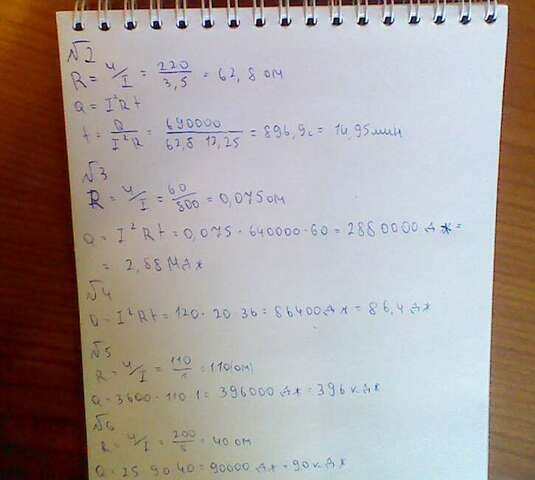 №2
R = U/I = 220/3,5 = 62,8 ом
Q = I²Rt
t = Q/I²R = 690000/62,8·12,25 = 896,9с = 14,95мин
№3
R = U/I = 60/800 = 0,075ом
Q = I²Rt = 0,075·640000·60 = 2880000 дж =
= 2,88 Мдж
№4
Q = I²Rt = 120·20·36 = 86400дж = 86,4 дж
№5
R = U/I = 110/1 = 110(ом)
Q = 3600·110·1 = 396000 дж = 396кдж
№6
R = U/I = 200/5 = 40 ом
Q = 25·90·40 = 90000 дж = 90кдж